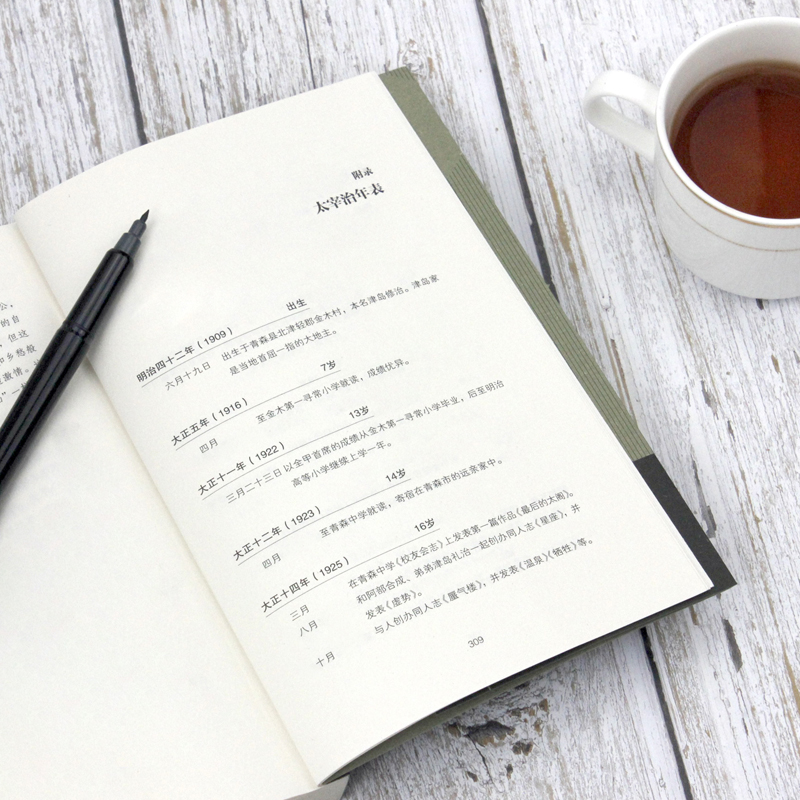 公,
的自
但这
和乡愁般
激情。
附录
太宰治年表
明治四十二年(1909) 出生
六月十九日 出生于青森县北津轻郡金木村,本名津岛修治。津岛家
是当地首屈一指的大地主。
大正五年(1916) 7岁
四月 至金木第一寻常小学就读,成绩优异。
大正十一年(1922) 13岁
三月二十三日 以全甲首席的成绩从金木第一寻常小学毕业,后至明治
高等小学继续上学一年。
大正十二年(1923) 14岁
四月 至青森中学就读,寄宿在青森市的远亲家中。
大正十四年(1925) 16岁
三月 在青森中学《校友会志》上发表第一篇作品《最后的太阁》。
八月 和阿部合成、弟弟津岛礼治一起创办同人志《星座》,并
发表《虚势》。
十月 与人创办同人志《蜃气楼》,并发表《温泉》《牺牲》等。
309